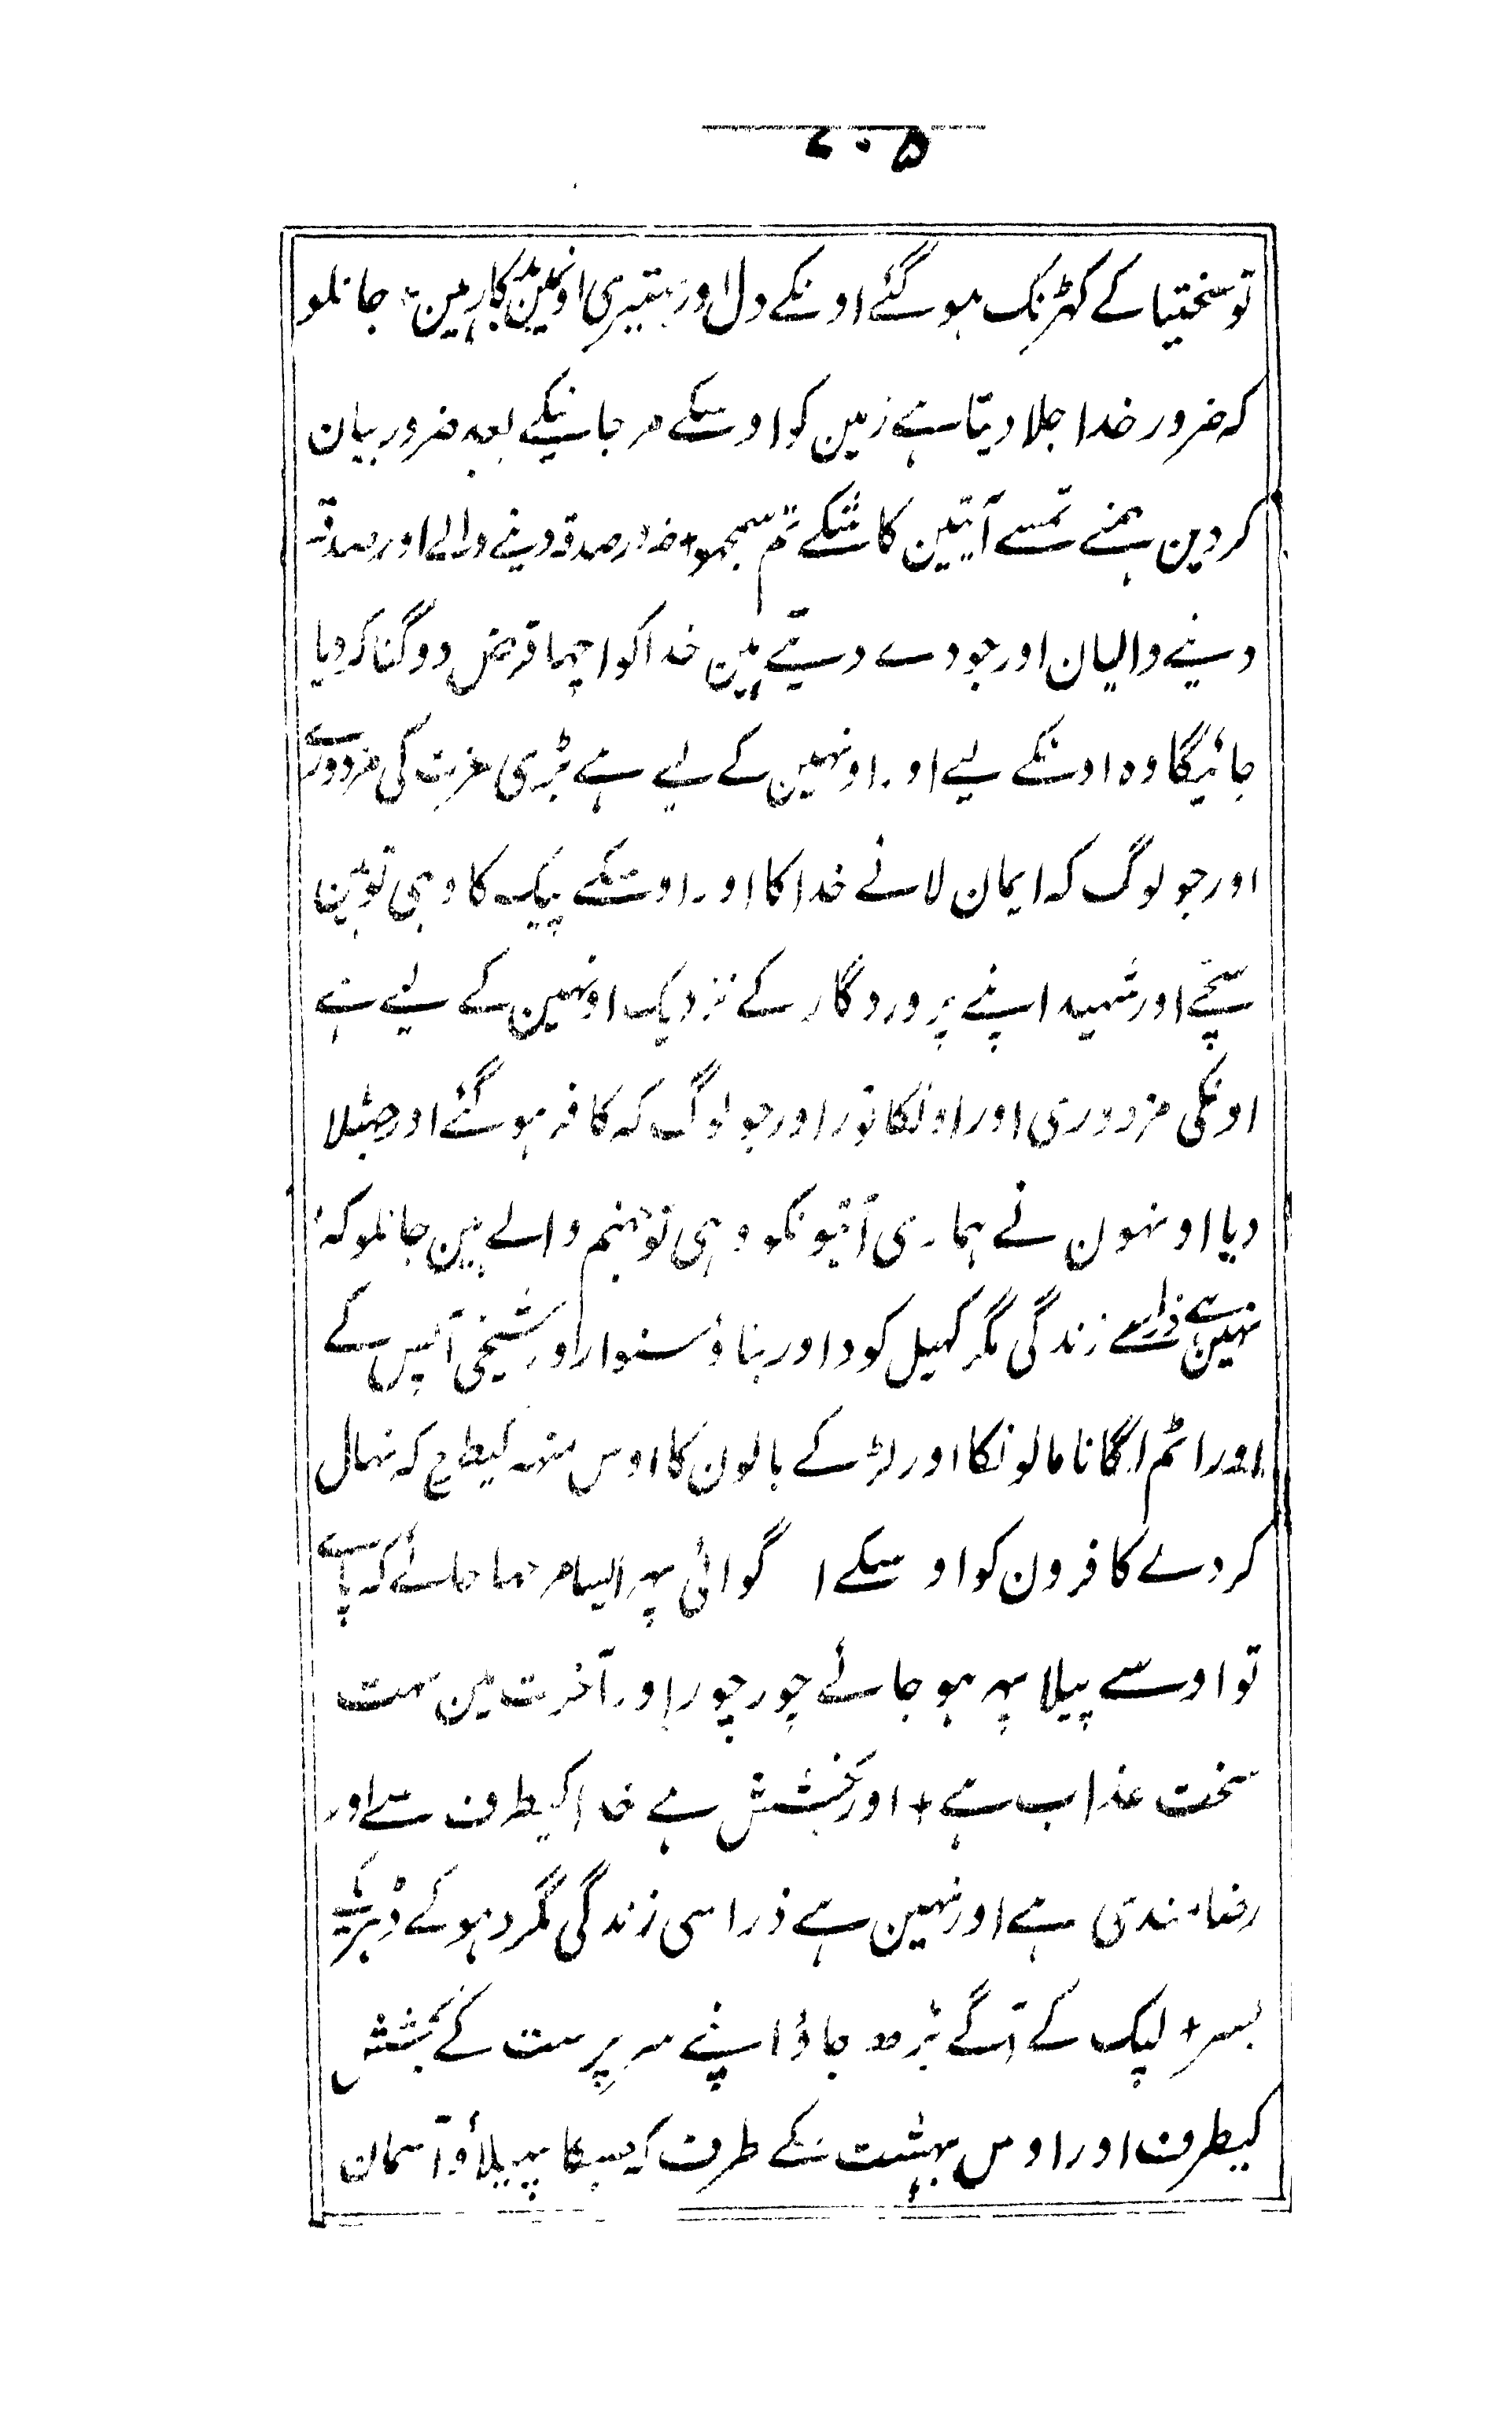 ۷۰۵
تو سختیا کے کہڑنک ہو گئے اونکے دل اور بہتیری اونمین بدکار ہین، جانلو
کہ ضرور خدا جلا دیتا ہے زمین کو اوسکے مر جانیکے بعد ضرور بیان
کردین ہمنے تمسے آیتین کاشکے تم سمجھو + ضرور صدقہ دینے والے اور صدقہ
دینے والیان اور جو دے دیتے ہین خدا کو اچھا قرض دوگنا کر دیا
جائیگا وہ اونکے لیے اور اونہین کے لیے ہے بڑی عزت کی مزدورے
اور جو لوگ کہ ایمان لائے خدا کا اور اوسکے پیک کا وہی تو ہین
سچے اور شہید اپنے پروردگار کے نزدیک اونہین کے لیے ہے
اونکی مزدوری اور اونکا نور اور جو لوگ کہ کافر ہو گئے اور جٹلا
دیا اونہون نے ہماری آیتونکو وہی تو جہنم والے ہین جانلو کہ
نہین ہے ذراسے زندگی مگر کہیل کود اور بناؤ سنوار اور شیخی آپس کے
اور اٹم لگانا مالونکا اور لڑکے بالون کا اوس منہہ کیطرح کہ نہال
کردے کافرون کو اوسکے ا گوائی پہر ایسا مرجھا جائے کہ پاے
تو اوسے پیلا پہر ہو جائے چور چور اور آخرت مین بہت
سخت عذاب ہے + اور بخشش ہے خدا کیطرف سے اور
رضامندی ہے اور نہین ہے ذرا سی زندگی مگر دہوکے
بسر + لپک کے آگے بڑھ جاؤ اپنے سرپرست کے بخشش
کیطرف اور اوس بہشت کے طرف کہ جسکا پہیلاؤ آسمان